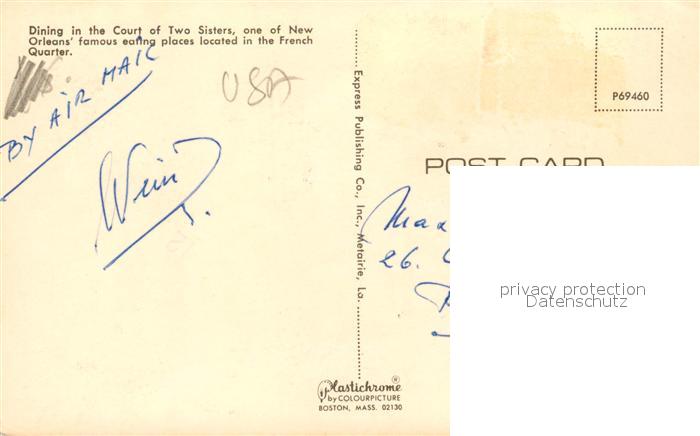 Dining in the Court of Two Sisters, one of New
Orleans' famous eating places located in the French
Quarter.
BY AIR MAIL
USA
Express Publishing Co., Inc., Metairie, La.
P69460
POST CARD
26.
privacy protection
Datenschutz
Plastichrome®
by COLOURPICTURE
BOSTON, MASS. 02130